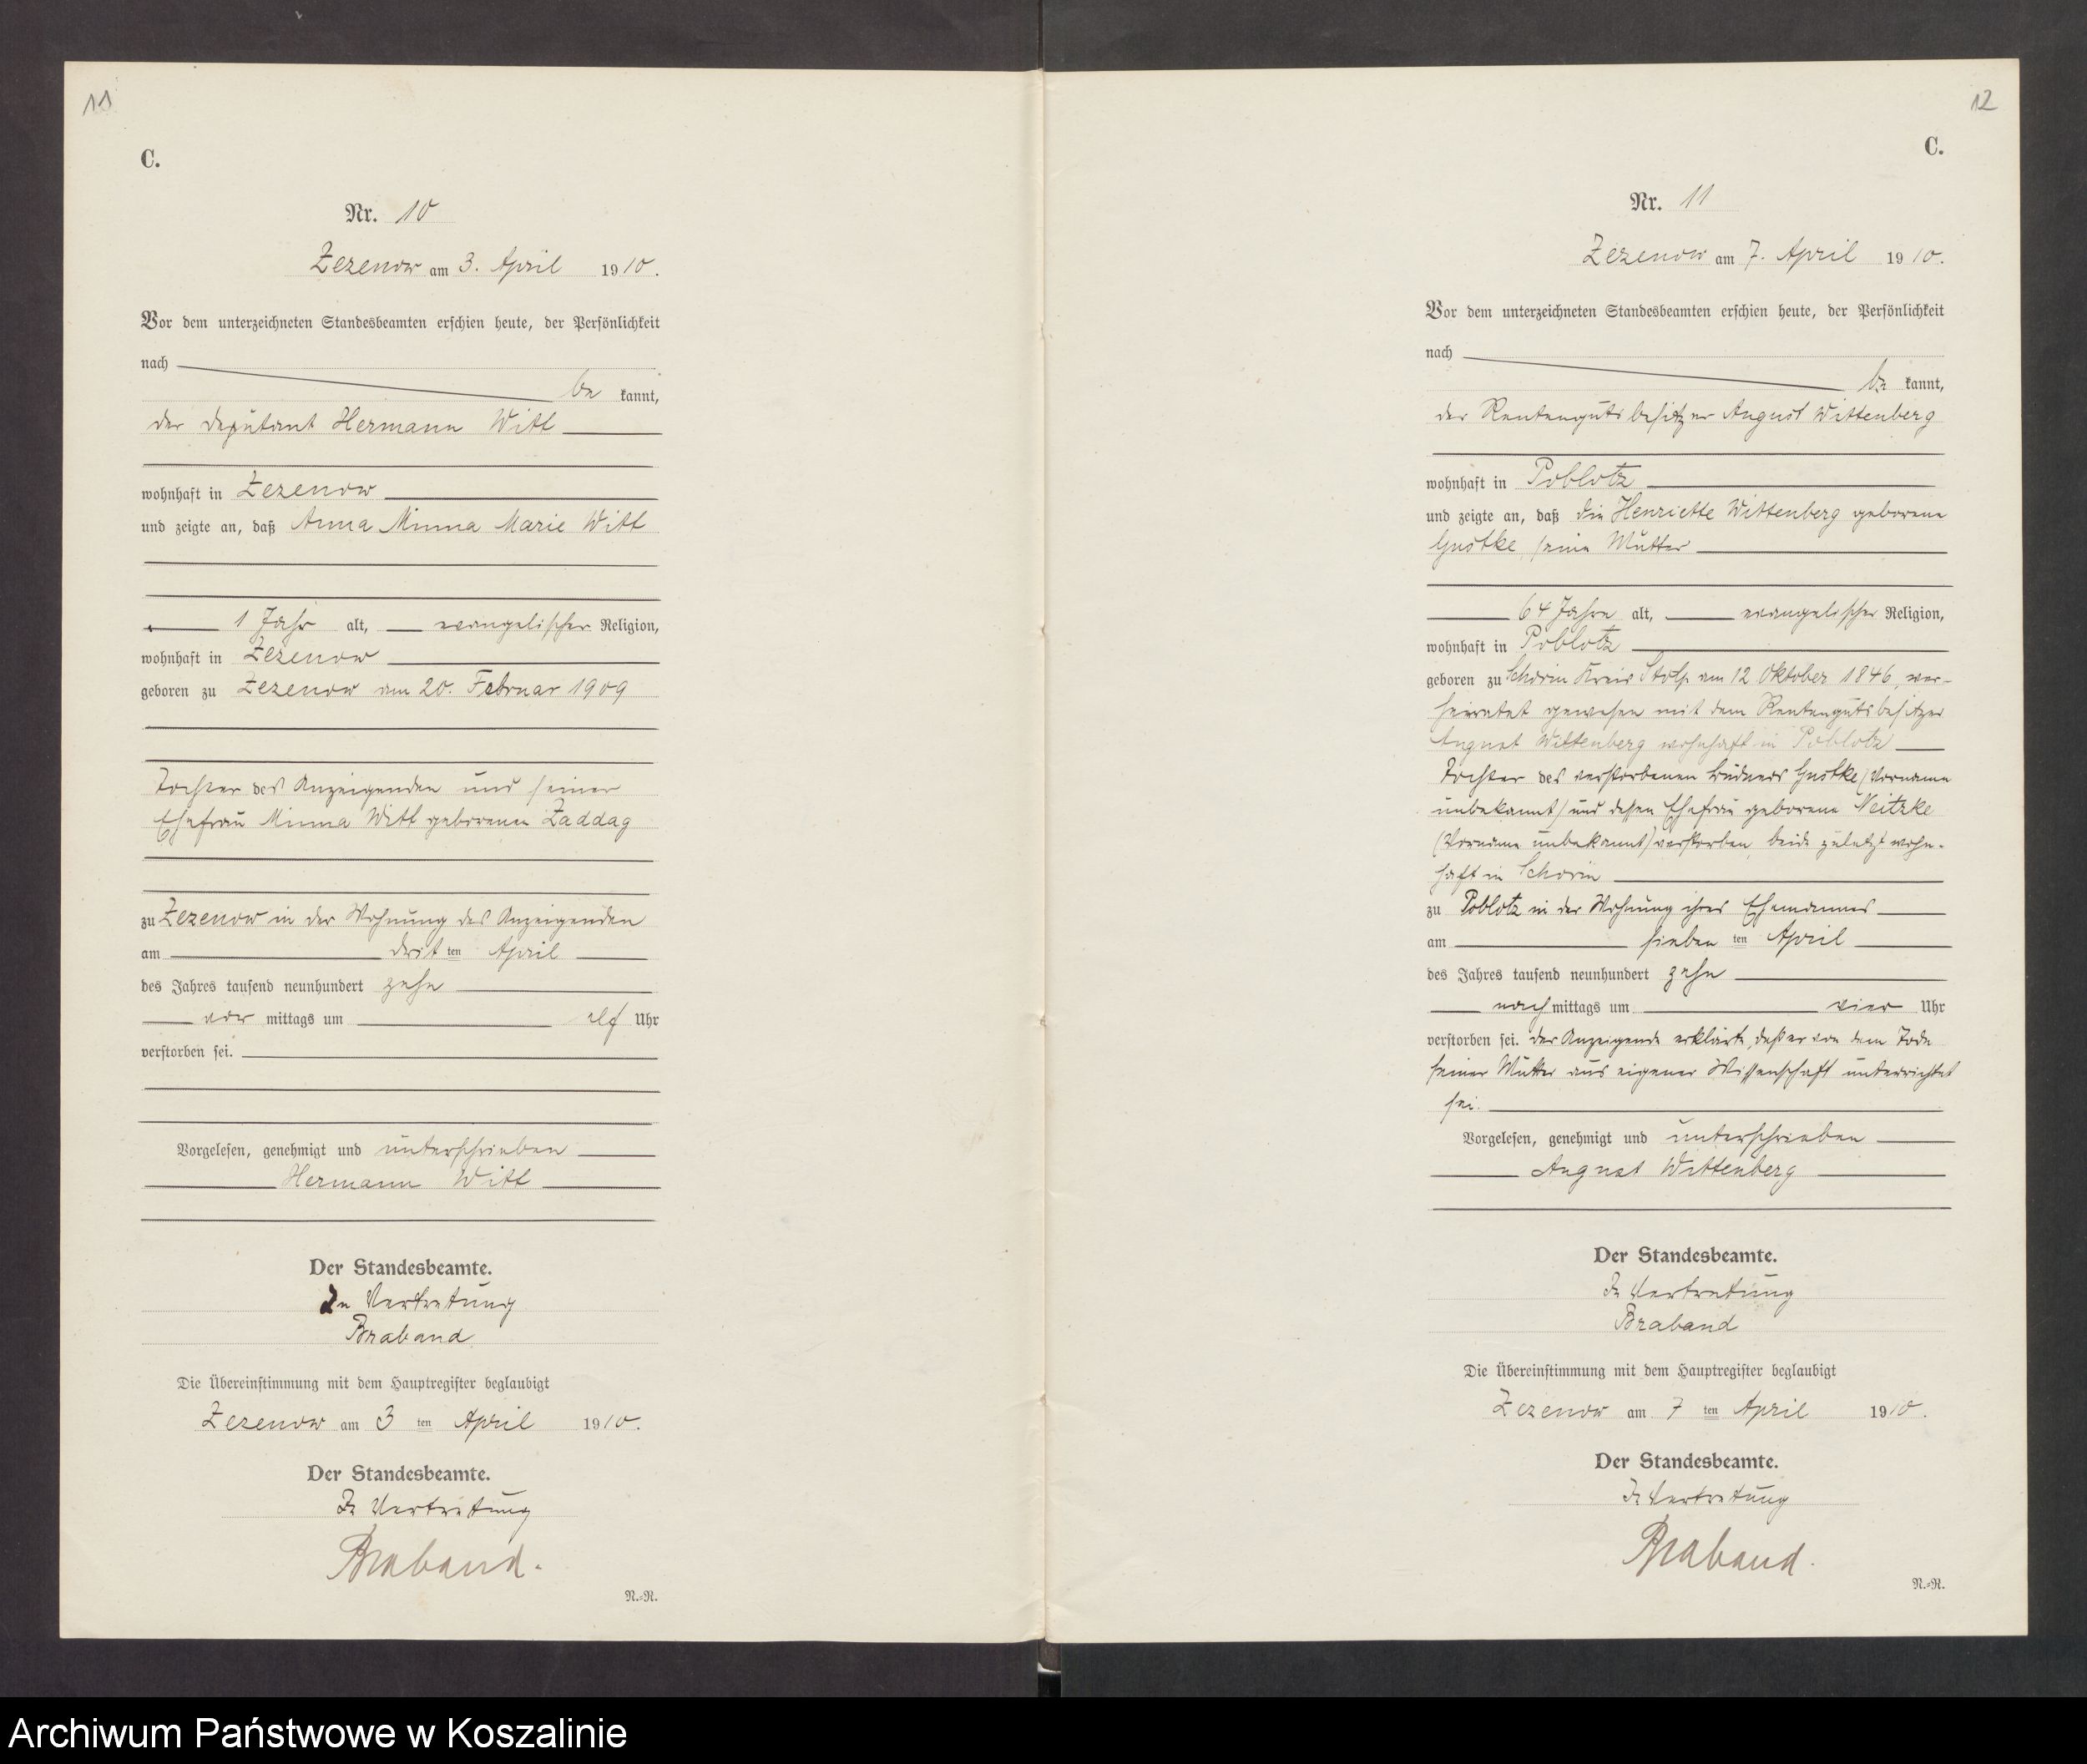 11
C.
Nr. 10
Zezenow am 3. April 1910.
Vor dem unterzeichneten Standesbeamten erschien heute, der Persönlichkeit
nach
be kannt,
der Deputant Hermann Witt
wohnhaft in Zezenow
und zeigte an, daß Anna Minna Marie Witt
1 Jahr alt, evangelischer Religion,
wohnhaft in Zezenow
geboren zu Zezenow am 20. Februar 1909
Tochter des Anzeigenden und seiner
Ehefrau Minna Witt geborenen Zaddag
zu Zezenow in der Wohnung des Anzeigenden
am drit ten April
des Jahres tausend neunhundert zehn
vor mittags um elf Uhr
verstorben sei.
Vorgelesen, genehmigt und unterschrieben
Hermann Witt
Der Standesbeamte.
In Vertretung
Braband
Die Übereinstimmung mit dem Hauptregister beglaubigt
Zezenow am 3 ten April 1910.
Der Standesbeamte.
In Vertretung
Braband.
N.=N.
12
C.
Nr. 11
Zezenow am 7. April 1910.
Vor dem unterzeichneten Standesbeamten erschien heute, der Persönlichkeit
nach
be kannt,
der Rentengutsbesitzer August Wittenberg
wohnhaft in Poblotz
und zeigte an, daß die Henriette Wittenberg geborene
Gustke, seine Mutter
64 Jahre alt, evangelischer Religion,
wohnhaft in Poblotz
geboren zu Schorin Kreis Stolp am 12. Oktober 1846, ver-
heiratet gewesen mit dem Rentengutsbesitzer
August Wittenberg wohnhaft in Poblotz
Tochter des verstorbenen Büdners Gustke (Vorname
unbekannt) und dessen Ehefrau geborene Neitzke
(Vorname unbekannt) verstorben, beide zuletzt wohn-
haft in Schorin
zu Poblotz in der Wohnung ihres Ehemannes
am sieben ten April
des Jahres tausend neunhundert zehn
nach mittags um vier Uhr
verstorben sei. Der Anzeigende erklärte, daß er von dem Tode
seiner Mutter aus eigener Wissenschaft unterrichtet
sei.
Vorgelesen, genehmigt und unterschrieben
August Wittenberg
Der Standesbeamte.
In Vertretung
Braband
Die Übereinstimmung mit dem Hauptregister beglaubigt
Zezenow am 7 ten April 1910.
Der Standesbeamte.
In Vertretung
Braband.
N.=N.
Archiwum Państwowe w Koszalinie